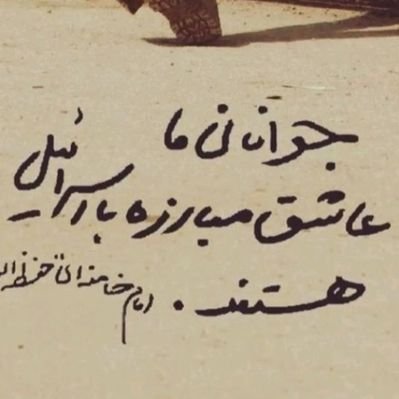 جوانان ما
عاشق مبارزه با اسرائیل
هستند.
امام خامنه‌ای حفظه الله